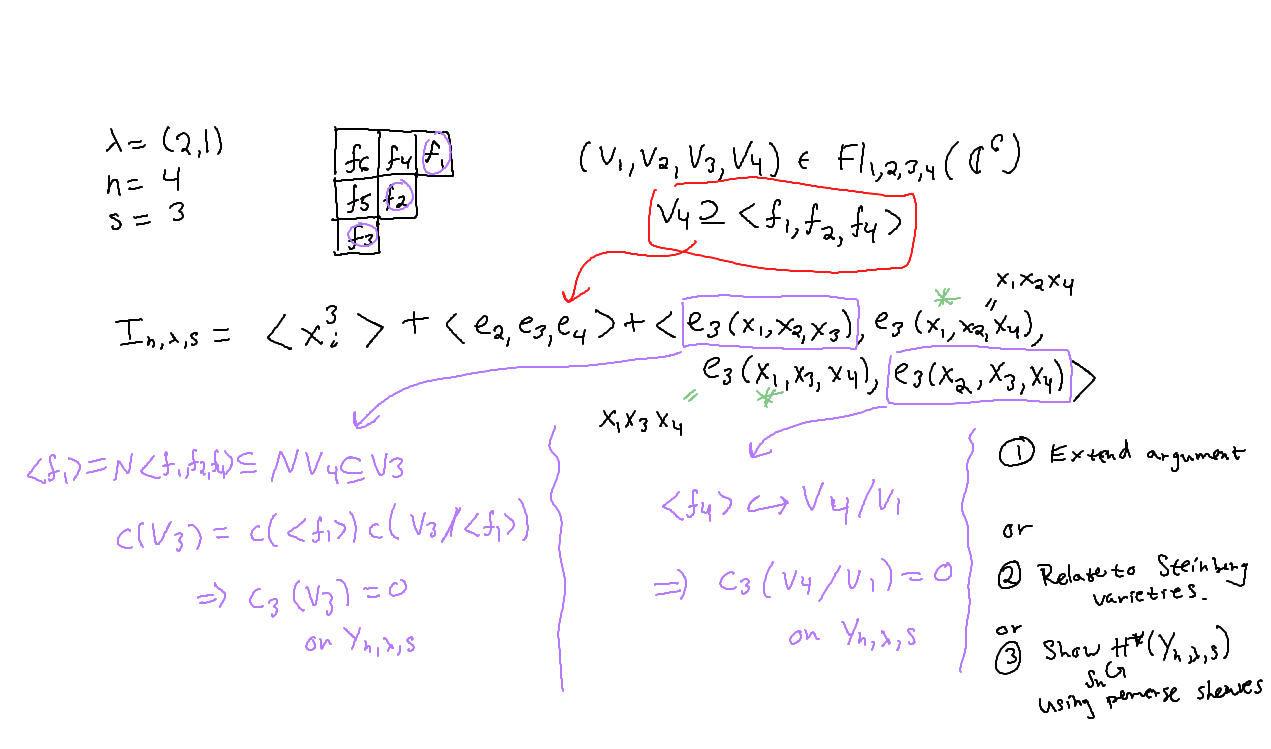 λ = (2,1)
n = 4
s = 3
f6 f4 f1
f5 f2
f3
(V1, V2, V3, V4) ∈ Fl1,2,3,4(ℂ^6)
V4 ⊇ <f1, f2, f4>
x1x2x4
In,λ,s = <x_i^3> + <e2, e3, e4> + <e3(x1,x2,x3), e3(x1,x2,x4),
e3(x1,x3,x4), e3(x2,x3,x4)>
x1x3x4
<f1> = N<f1,f2,f4> ⊆ NV4 ⊆ V3
c(V3) = c(<f1>) c(V3/<f1>)
⇒ c3(V3) = 0
on Yn,λ,s
<f4> ↪ V4/V1
⇒ c3(V4/V1) = 0
on Yn,λ,s
① Extend argument
or
② Relate to Steinberg
varieties.
or
③ Show H*(Yn,λ,s)
Sn
using perverse sheaves